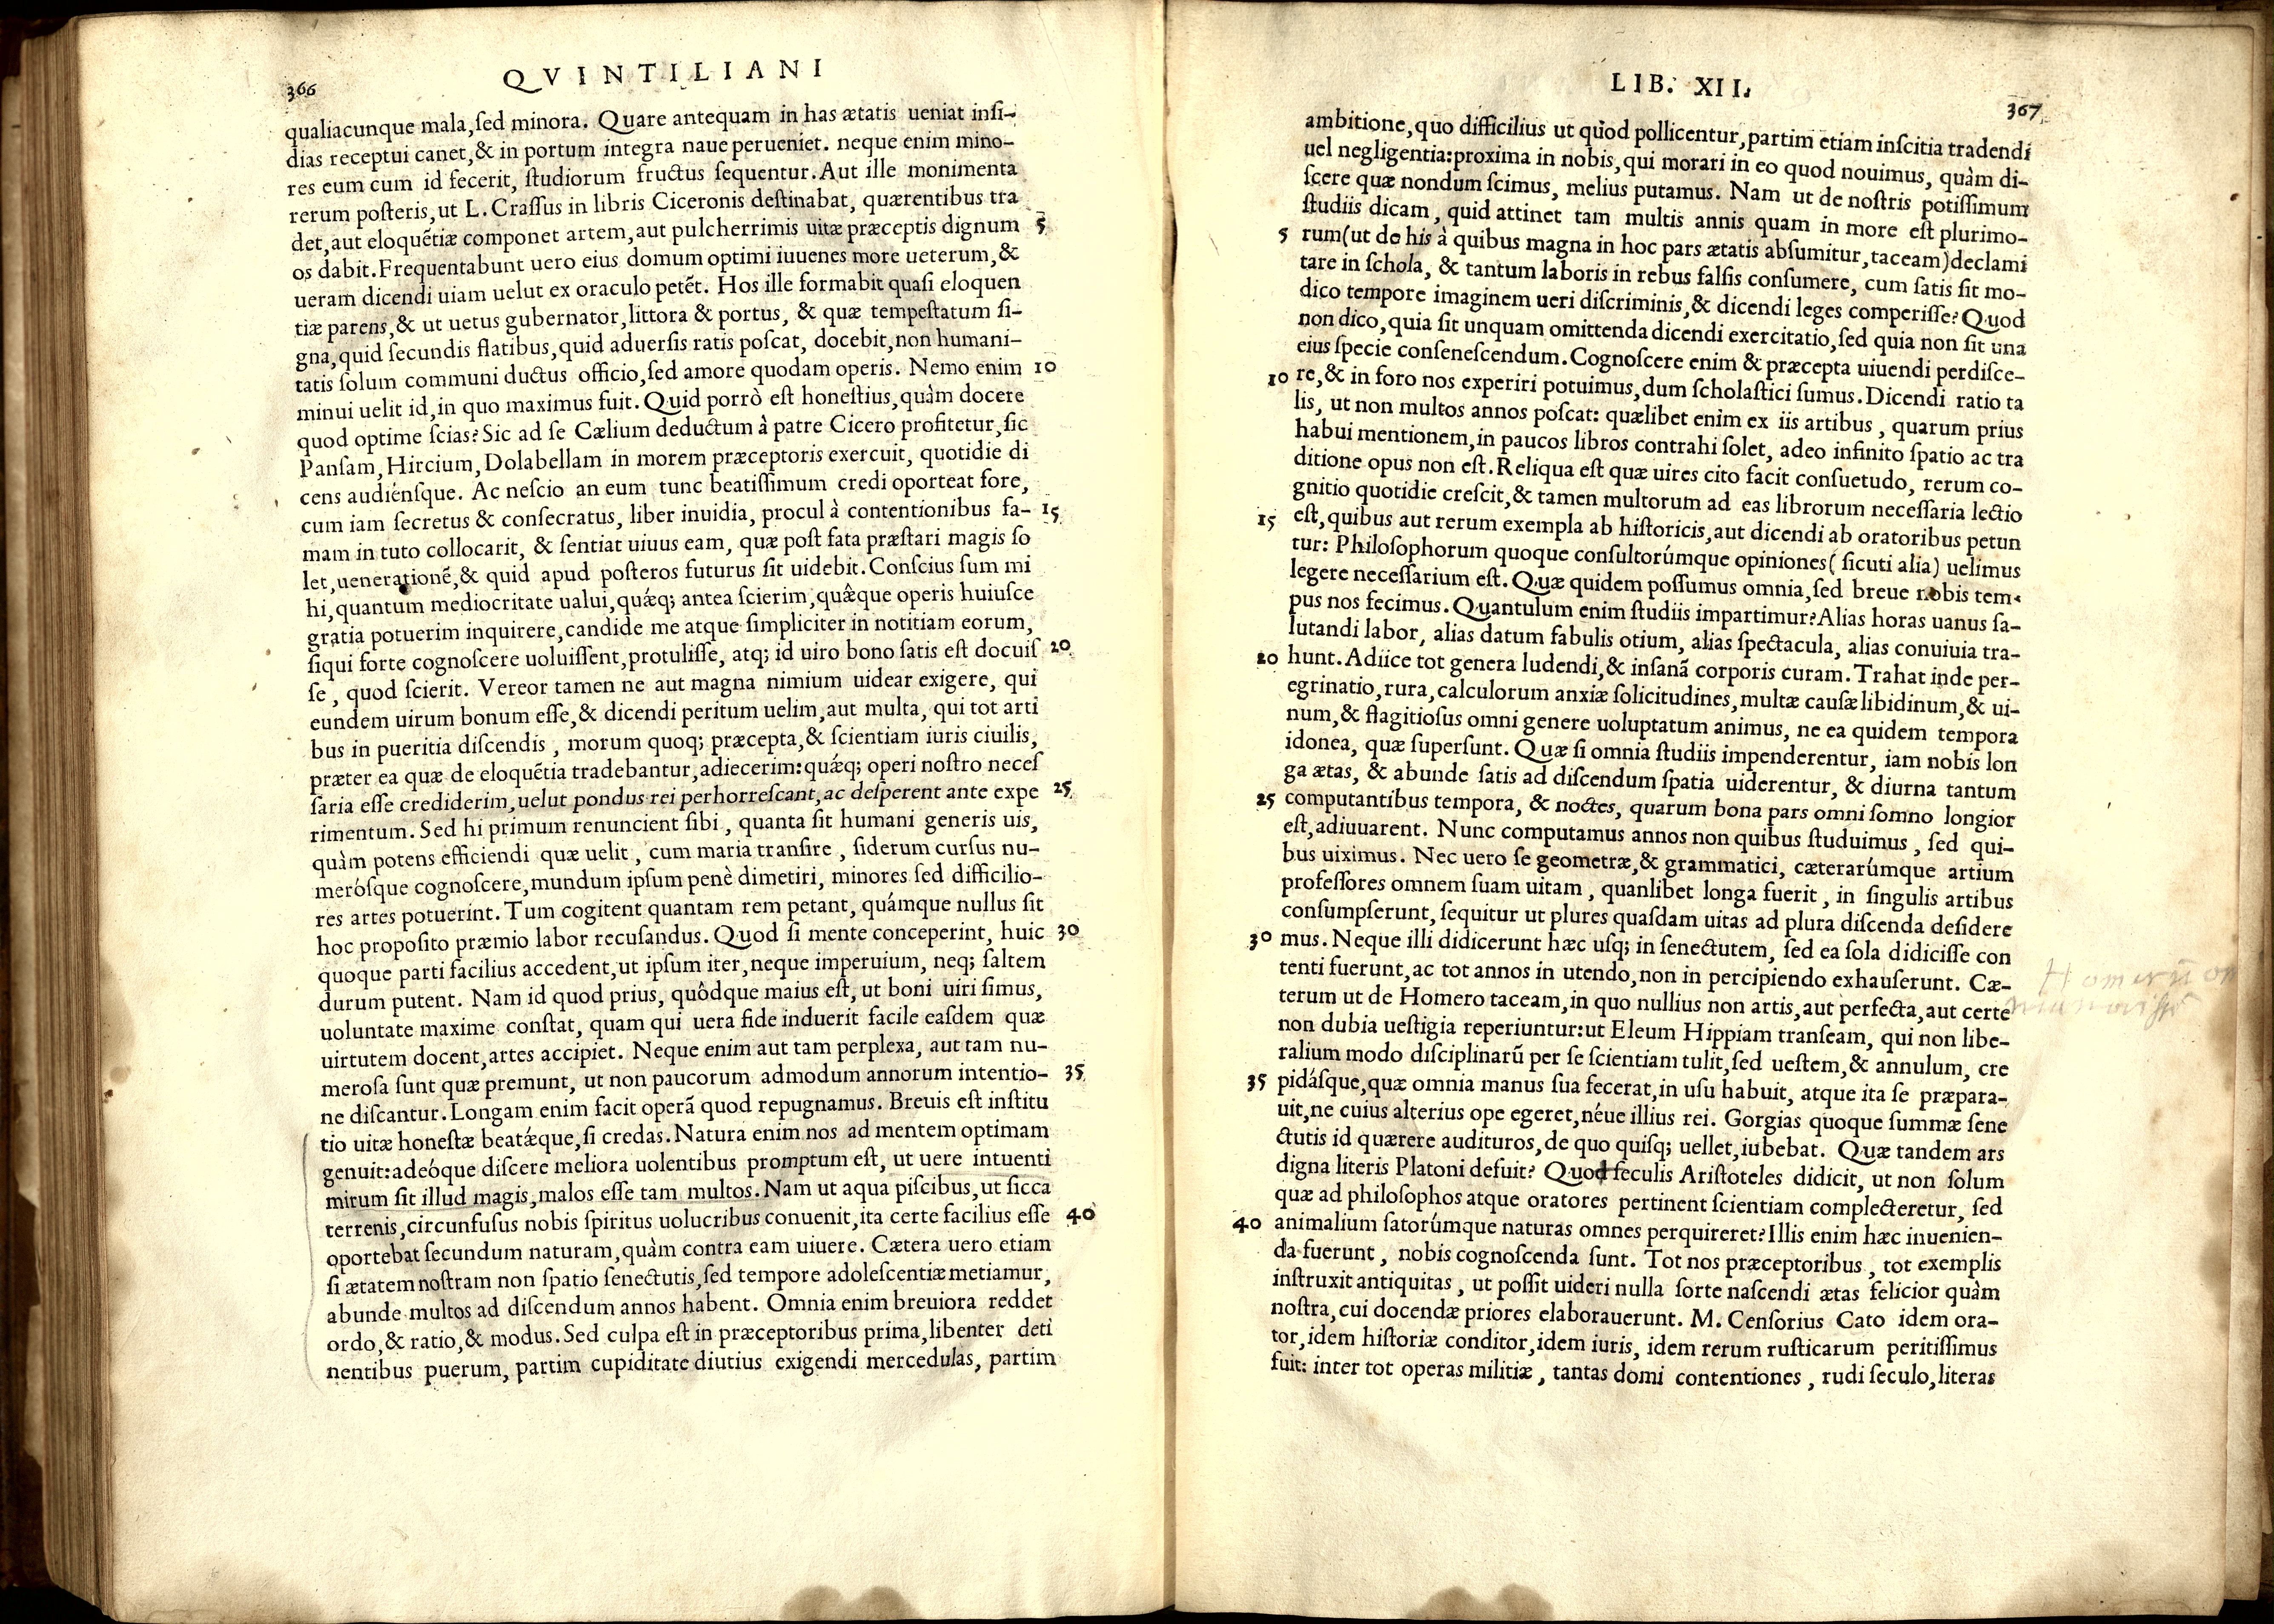 366
QVINTILIANI
qualiacunque mala, ſed minora. Quare antequam in has ætatis ueniat inſi-
dias receptui canet, & in portum integra naue perueniet. neque enim mino-
res eum cum id fecerit, ſtudiorum fructus ſequentur. Aut ille monimenta
rerum poſteris, ut L. Craſſus in libris Ciceronis deſtinabat, quærentibus tra
det, aut eloquẽtiæ componet artem, aut pulcherrimis uitæ præceptis dignum 5
os dabit. Frequentabunt uero eius domum optimi iuuenes more ueterum, &
ueram dicendi uiam uelut ex oraculo petẽt. Hos ille formabit quaſi eloquen
tiæ parens, & ut uetus gubernator, littora & portus, & quæ tempeſtatum ſi-
gna, quid ſecundis flatibus, quid aduerſis ratis poſcat, docebit, non humani-
tatis ſolum communi ductus officio, ſed amore quodam operis. Nemo enim 10
minui uelit id, in quo maximus fuit. Quid porrò eſt honeſtius, quàm docere
quod optime ſcias? Sic ad ſe Cælium deductum à patre Cicero profitetur, ſic
Panſam, Hircium, Dolabellam in morem præceptoris exercuit, quotidie di
cens audiénſque. Ac neſcio an eum tunc beatiſſimum credi oporteat fore,
cum iam ſecretus & conſecratus, liber inuidia, procul à contentionibus fa- 15
mam in tuto collocarit, & ſentiat uiuus eam, quæ poſt fata præſtari magis ſo
let, uenerationẽ, & quid apud poſteros futurus ſit uidebit. Conſcius ſum mi
hi, quantum mediocritate ualui, quǽq; antea ſcierim, quæ̂que operis huiuſce
gratia potuerim inquirere, candide me atque ſimpliciter in notitiam eorum,
ſiqui forte cognoſcere uoluiſſent, protuliſſe, atq; id uiro bono ſatis eſt docuiſ 20
ſe, quod ſcierit. Vereor tamen ne aut magna nimium uidear exigere, qui
eundem uirum bonum eſſe, & dicendi peritum uelim, aut multa, qui tot arti
bus in pueritia diſcendis, morum quoq; præcepta, & ſcientiam iuris ciuilis,
præter ea quæ de eloquẽtia tradebantur, adiecerim: quǽq; operi noſtro neceſ
ſaria eſſe crediderim, uelut pondus rei perhorreſcant, ac deſperent ante expe 25
rimentum. Sed hi primum renuncient ſibi, quanta ſit humani generis uis,
quàm potens efficiendi quæ uelit, cum maria tranſire, ſiderum curſus nu-
meróſque cognoſcere, mundum ipſum penè dimetiri, minores ſed difficilio-
res artes potuerint. Tum cogitent quantam rem petant, quámque nullus ſit
hoc propoſito præmio labor recuſandus. Quod ſi mente conceperint, huic 30
quoque parti facilius accedent, ut ipſum iter, neque imperuium, neq; ſaltem
durum putent. Nam id quod prius, quôdque maius eſt, ut boni uiri ſimus,
uoluntate maxime conſtat, quam qui uera fide induerit facile eaſdem quæ
uirtutem docent, artes accipiet. Neque enim aut tam perplexa, aut tam nu-
meroſa ſunt quæ premunt, ut non paucorum admodum annorum intentio- 35
ne diſcantur. Longam enim facit operã quod repugnamus. Breuis eſt inſtitu
tio uitæ honeſtæ beatǽque, ſi credas. Natura enim nos ad mentem optimam
genuit: adeóque diſcere meliora uolentibus promptum eſt, ut uere intuenti
mirum ſit illud magis, malos eſſe tam multos. Nam ut aqua piſcibus, ut ſicca
terrenis, circunfuſus nobis ſpiritus uolucribus conuenit, ita certe facilius eſſe 40
oportebat ſecundum naturam, quàm contra eam uiuere. Cætera uero etiam
ſi ætatem noſtram non ſpatio ſenectutis, ſed tempore adoleſcentiæ metiamur,
abunde multos ad diſcendum annos habent. Omnia enim breuiora reddet
ordo, & ratio, & modus. Sed culpa eſt in præceptoribus prima, libenter deti
nentibus puerum, partim cupiditate diutius exigendi mercedulas, partim
LIB. XII.
367
ambitione, quo difficilius ut quòd pollicentur, partim etiam inſcitia tradendi
uel negligentia: proxima in nobis, qui morari in eo quod nouimus, quàm di-
ſcere quæ nondum ſcimus, melius putamus. Nam ut de noſtris potiſſimum
ſtudiis dicam, quid attinet tam multis annis quam in more eſt plurimo-
5 rum (ut de his à quibus magna in hoc pars ætatis abſumitur, taceam) declami
tare in ſchola, & tantum laboris in rebus falſis conſumere, cum ſatis ſit mo-
dico tempore imaginem ueri diſcriminis, & dicendi leges comperiſſe? Quod
non dico, quia ſit unquam omittenda dicendi exercitatio, ſed quia non ſit una
eius ſpecie conſeneſcendum. Cognoſcere enim & præcepta uiuendi perdiſce-
10 re, & in foro nos experiri potuimus, dum ſcholaſtici ſumus. Dicendi ratio ta
lis, ut non multos annos poſcat: quælibet enim ex iis artibus, quarum prius
habui mentionem, in paucos libros contrahi ſolet, adeo infinito ſpatio ac tra
ditione opus non eſt. Reliqua eſt quæ uires cito facit conſuetudo, rerum co-
gnitio quotidie creſcit, & tamen multorum ad eas librorum neceſſaria lectio
15 eſt, quibus aut rerum exempla ab hiſtoricis, aut dicendi ab oratoribus petun
tur: Philoſophorum quoque conſultorúmque opiniones (ſicuti alia) uelimus
legere neceſſarium eſt. Quæ quidem poſſumus omnia, ſed breue nobis tem-
pus nos fecimus. Quantulum enim ſtudiis impartimur? Alias horas uanus ſa-
lutandi labor, alias datum fabulis otium, alias ſpectacula, alias conuiuia tra-
20 hunt. Adiice tot genera ludendi, & inſanã corporis curam. Trahat inde per-
egrinatio, rura, calculorum anxiæ ſolicitudines, multæ cauſæ libidinum, & ui-
num, & flagitioſus omni genere uoluptatum animus, ne ea quidem tempora
idonea, quæ ſuperſunt. Quæ ſi omnia ſtudiis impenderentur, iam nobis lon
ga ætas, & abunde ſatis ad diſcendum ſpatia uiderentur, & diurna tantum
25 computantibus tempora, & noctes, quarum bona pars omni ſomno longior
eſt, adiuuarent. Nunc computamus annos non quibus ſtuduimus, ſed qui-
bus uiximus. Nec uero ſe geometræ, & grammatici, cæterarúmque artium
profeſſores omnem ſuam uitam, quanlibet longa fuerit, in ſingulis artibus
conſumpſerunt, ſequitur ut plures quaſdam uitas ad plura diſcenda deſidere
30 mus. Neque illi didicerunt hæc uſq; in ſenectutem, ſed ea ſola didiciſſe con
tenti fuerunt, ac tot annos in utendo, non in percipiendo exhauſerunt. Cæ-
terum ut de Homero taceam, in quo nullius non artis, aut perfecta, aut certe
non dubia ueſtigia reperiuntur: ut Eleum Hippiam tranſeam, qui non libe-
ralium modo diſciplinarũ per ſe ſcientiam tulit, ſed ueſtem, & annulum, cre
35 pidáſque, quæ omnia manus ſua fecerat, in uſu habuit, atque ita ſe præpara-
uit, ne cuius alterius ope egeret, néue illius rei. Gorgias quoque ſummæ ſene
ctutis id quærere audituros, de quo quiſq; uellet, iubebat. Quæ tandem ars
digna literis Platoni defuit? Quod ſeculis Ariſtoteles didicit, ut non ſolum
quæ ad philoſophos atque oratores pertinent ſcientiam complecteretur, ſed
40 animalium ſatorúmque naturas omnes perquireret? Illis enim hæc inuenien-
da fuerunt, nobis cognoſcenda ſunt. Tot nos præceptoribus, tot exemplis
inſtruxit antiquitas, ut poſſit uideri nulla ſorte naſcendi ætas felicior quàm
noſtra, cui docendæ priores elaborauerunt. M. Cenſorius Cato idem ora-
tor, idem hiſtoriæ conditor, idem iuris, idem rerum ruſticarum peritiſſimus
fuit: inter tot operas militiæ, tantas domi contentiones, rudi ſeculo, literas
Homerũ